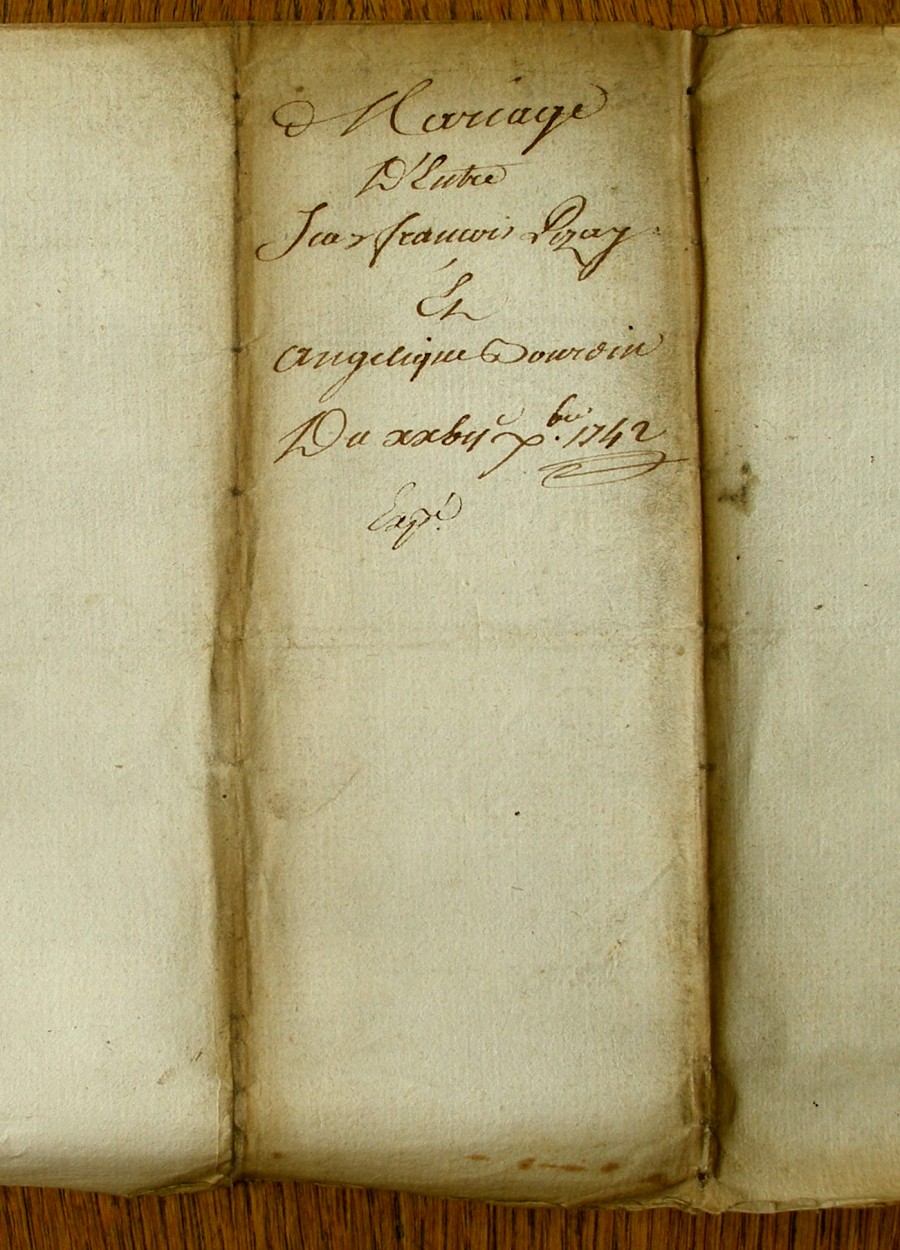 Mariage
D'Entre
Jean francois Pizay
Et
Angelique Dourdin
Du xxvij xbre 1742
Expé